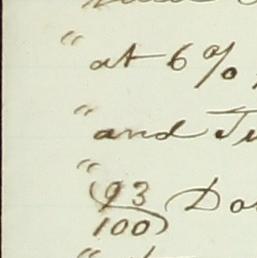 " at 6 %
" and
" (93/100) Do
"